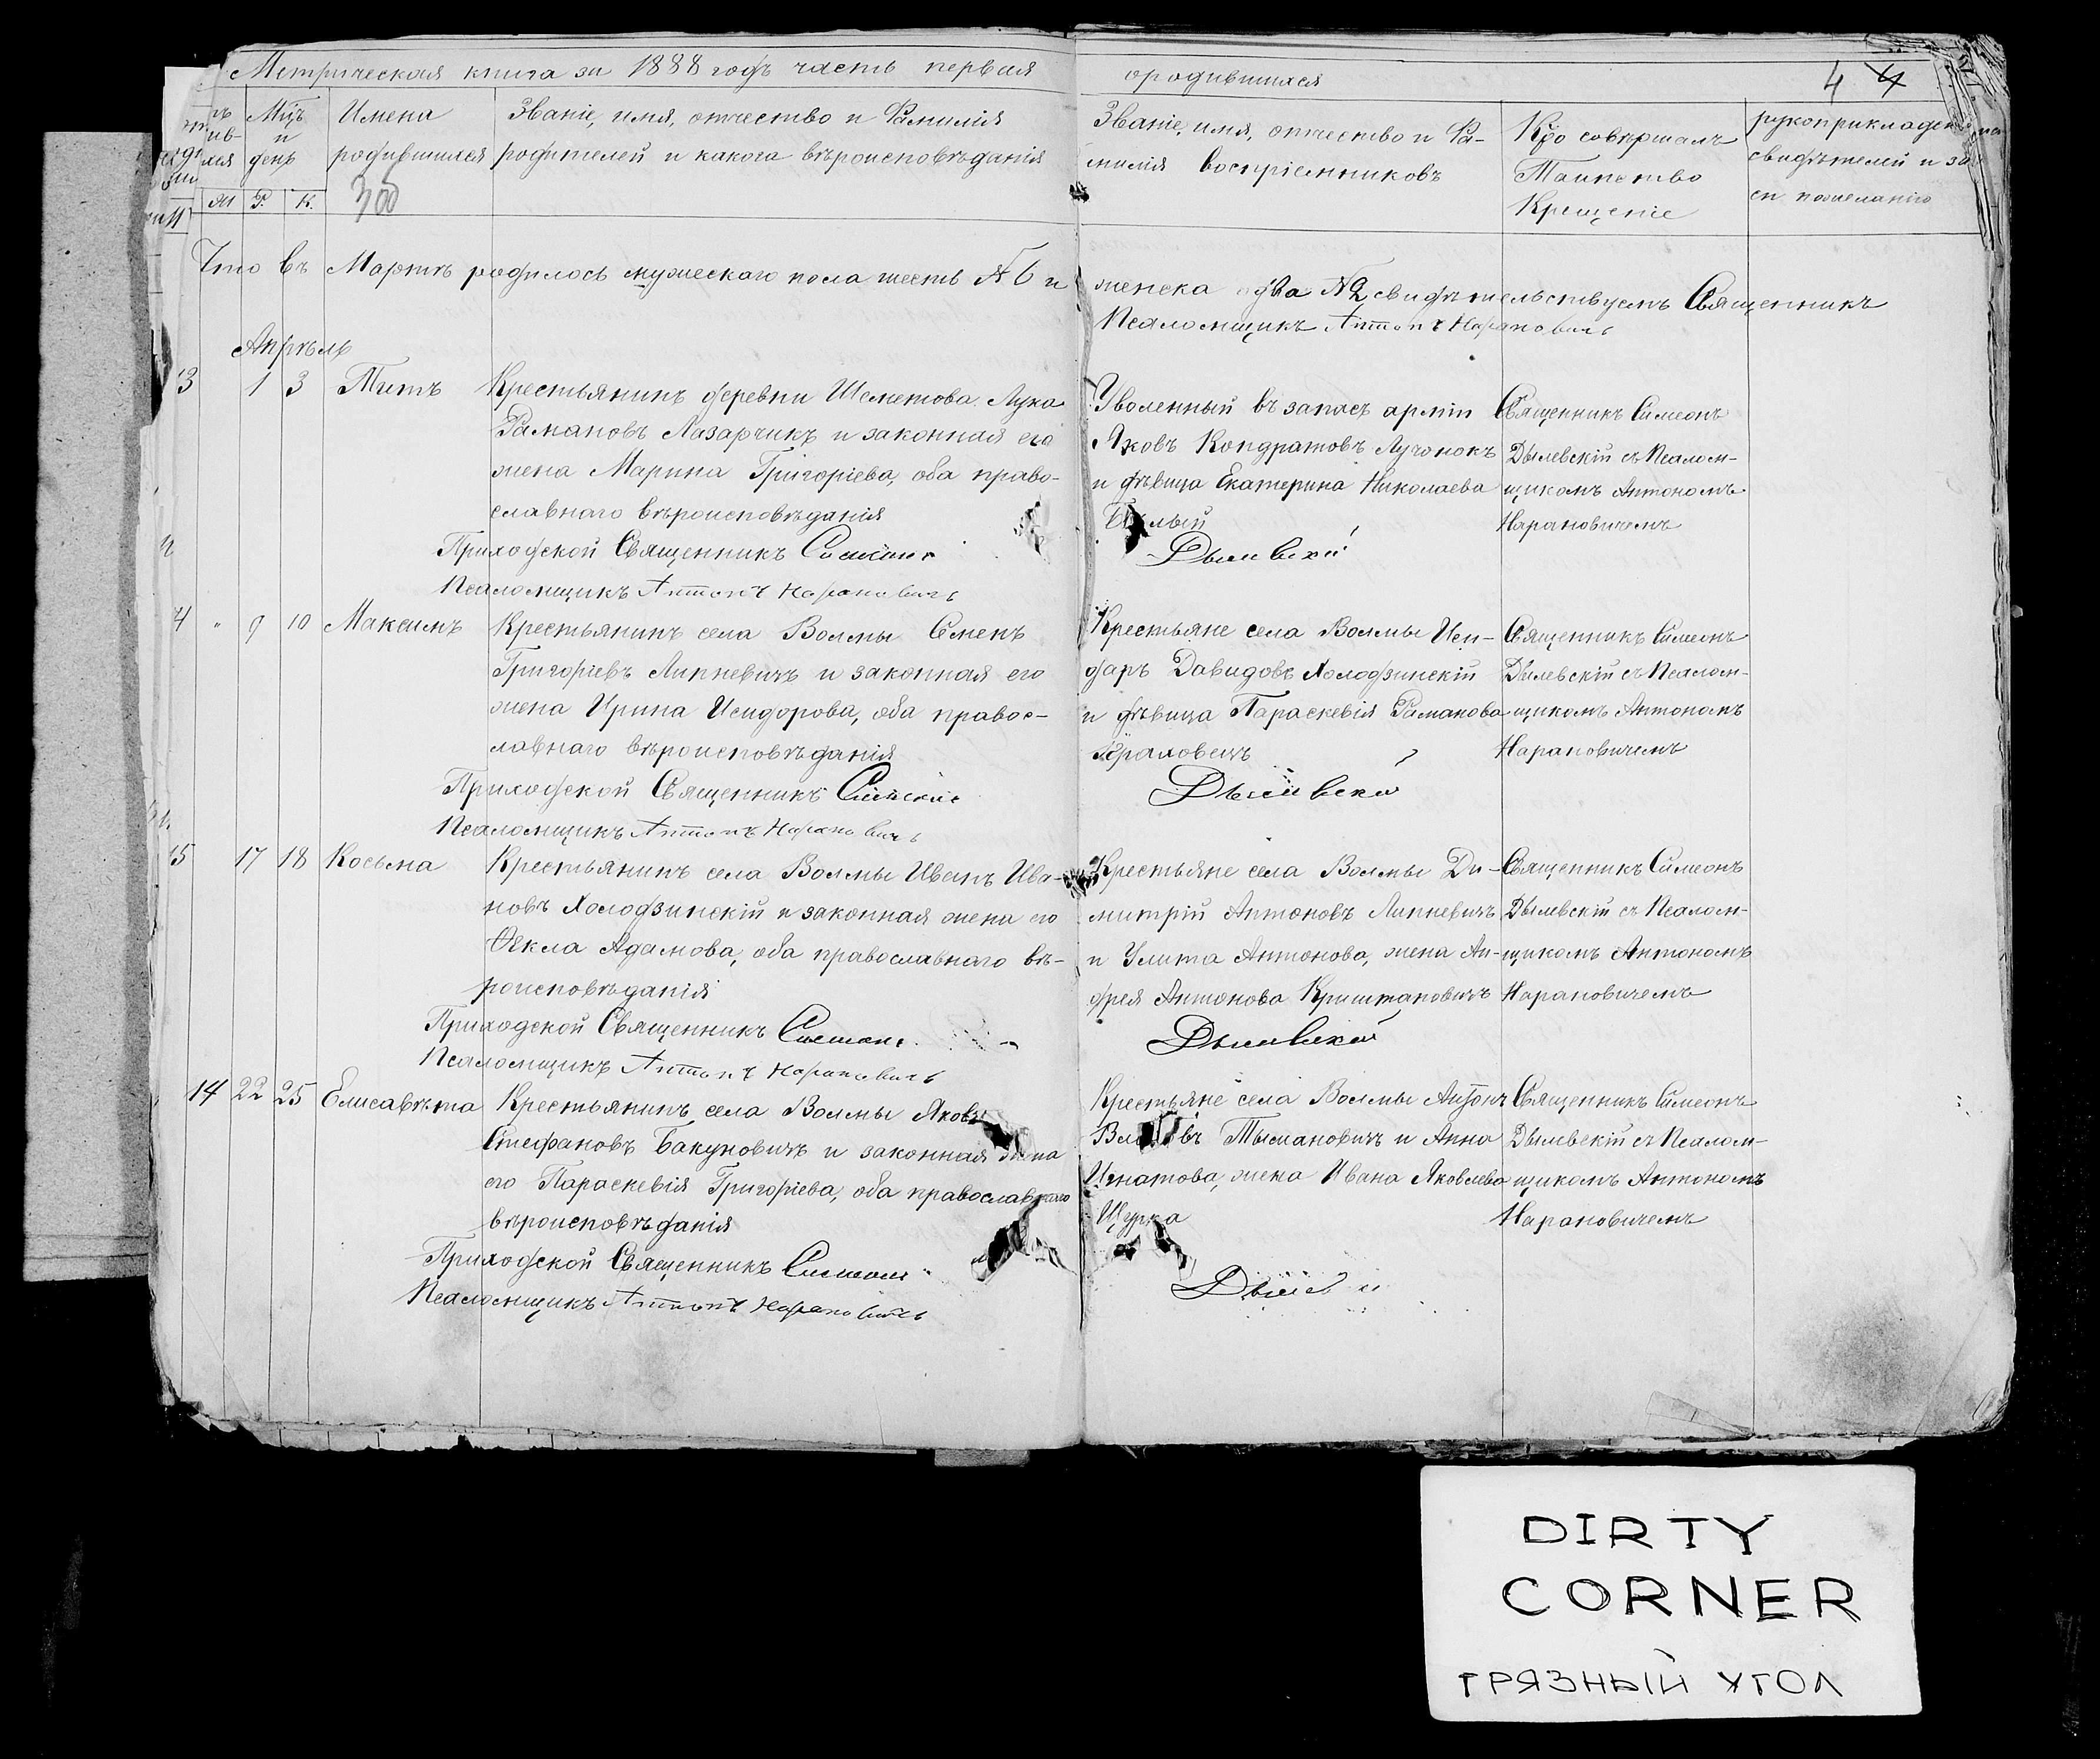 Метрическая книга за 1888 годъ часть первая
ородившихся
4 4
Мцъ
и
день
Имена
родившихся
Званіе, имя, отчество и Фамилія
родителей и какога въроисповѣданія
М Р. К.
300
Званіе, имя, отчество и Фа-
милія воспріемниковъ
Кто совершалъ
Таинство
Крещеніе
рукоприкладство
свидѣтелей и за
си пожеланію
Что въ Мартѣ родилось мужескаго пола шесть № 6 и
женска два № 2 свидѣтельствуемъ Священникъ
Псаломщикъ Антонъ Нарановичъ
Апрѣль
13 1 3 Титъ
Крестьянинъ деревни Шеметова Лука
Рамановъ Лазарчикъ и законная его
жена Марина Григоріева, оба право-
славнаго вѣроисповѣданія
Приходской Священникъ Симеонъ
Псаломщикъ Антонъ Нарановичъ
Уволенный въ запасъ арміи
Яковъ Кондратовъ Лучонокъ
и дѣвица Екатерина Николаева
Дылевскій
Священникъ Симеонъ
Дылевскій съ Псалом-
щикомъ Антономъ
Нарановичемъ
4 " 9 10 Максимъ
Крестьянинъ села Волмы Семенъ
Григоріевъ Липневичъ и законная его
жена Ирина Исидорова, оба правос-
лавнаго вѣроисповѣданія
Приходской Священникъ Симеонъ
Псаломщикъ Антонъ Нарановичъ
Крестьяне села Волмы Иси-
доръ Давидовъ Холодзинскій
и дѣвица Параскевія Раманова
Драховецъ
Дылевскій
Священникъ Симеонъ
Дылевскій съ Псалом-
щикомъ Антономъ
Нарановичемъ
15 17 18 Косьма
Крестьянинъ села Волмы Иванъ Ива-
новъ Холодзинскій и законная жена его
Ѳекла Адамова, оба православнаго вѣ-
роисповѣданія
Приходской Священникъ Симеонъ
Псаломщикъ Антонъ Нарановичъ
Крестьяне села Волмы Ди-
митрій Антоновъ Липневичъ
и Улита Антонова, жена Ан-
дрея Антонова Криштановичъ
Дылевскій
Священникъ Симеонъ
Дылевскій съ Псалом-
щикомъ Антономъ
Нарановичемъ
14 22 25 Елисавѣта
Крестьянинъ села Волмы Яковъ
Стефановъ Бакуновичъ и законная жена
его Параскевія Григоріева, оба православнаго
вѣроисповѣданія
Приходской Священникъ Симеонъ
Псаломщикъ Антонъ Нарановичъ
Крестьяне села Волмы Антонъ
Тымановичъ и Анна
Игнатова, жена Ивана Яковлева
Щурка
Священникъ Симеонъ
Дылевскій съ Псалом-
щикомъ Антономъ
Нарановичемъ
DIRTY
CORNER
ГРЯЗНЫЙ УГОЛ